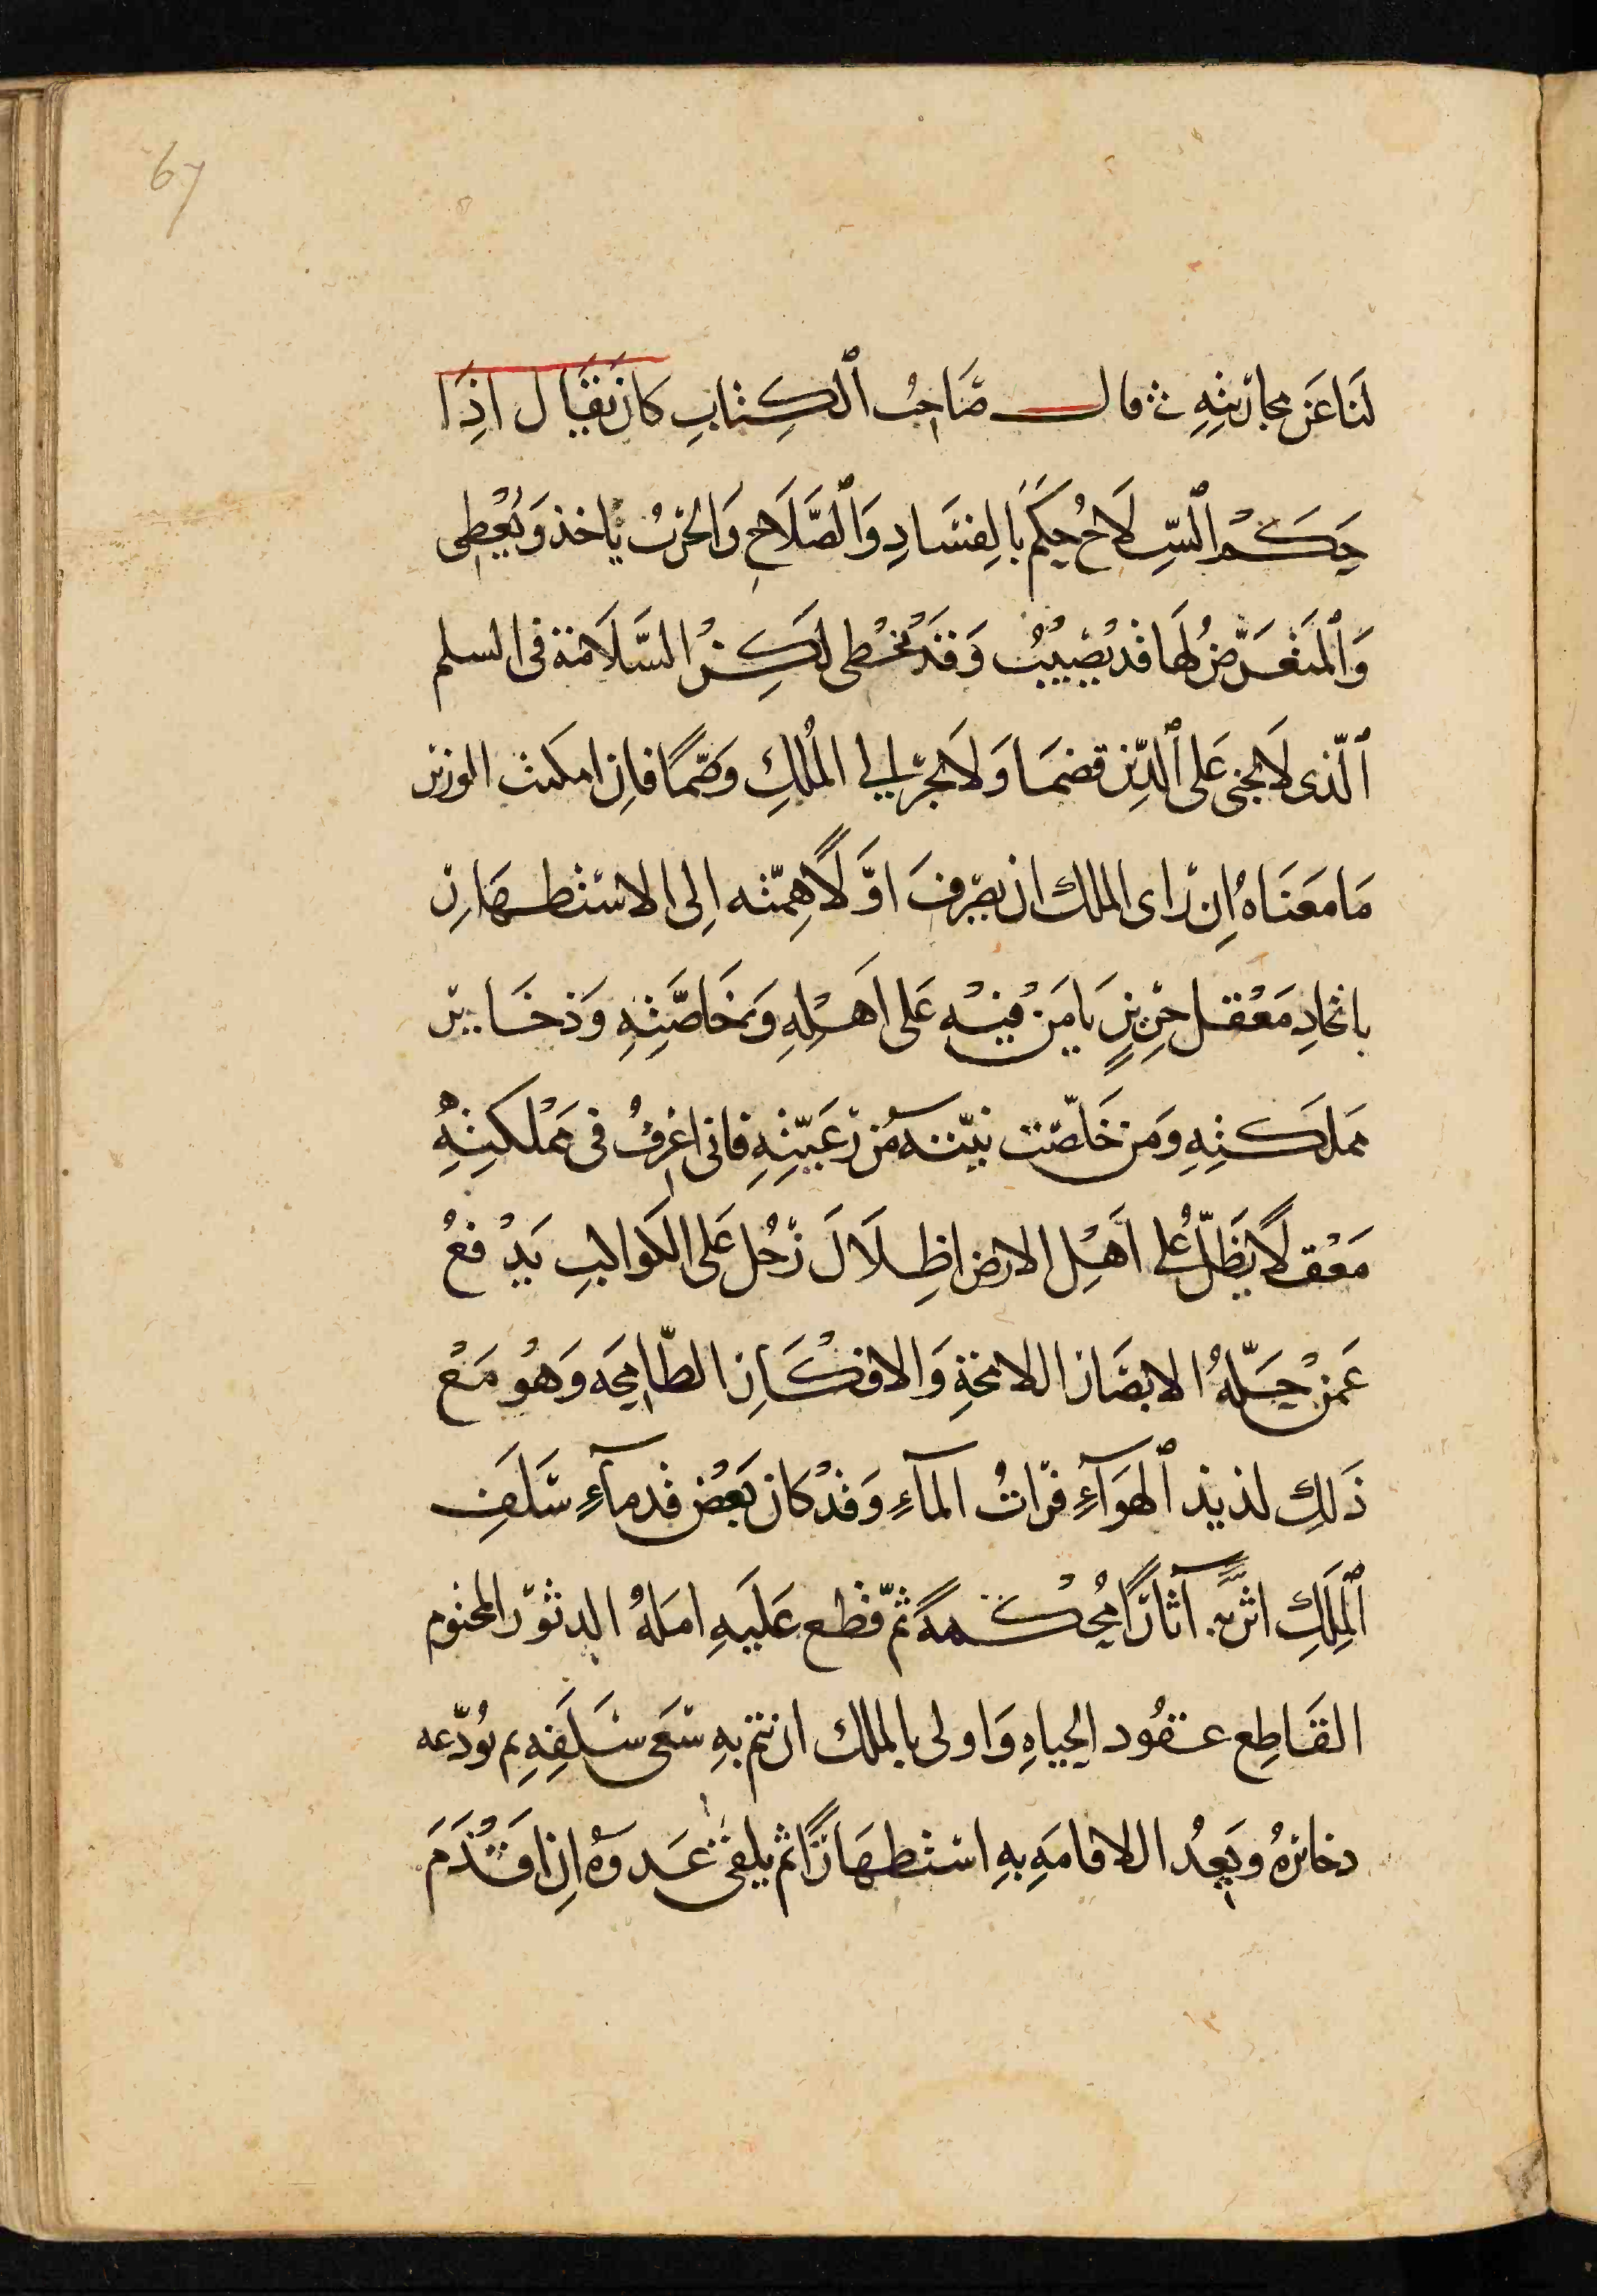 67
لَنَا عَن محَارَبتِهِ ؞ قال صَاحِبُ ٱلكِتَابِ كَانَ يُقَالُ اذِا
حَكَمَ السِّلَاحُ حُكِمَ بَالفَسَادِ وَٱلصَّلَاحِ وَالحَرْبُ يَاخذ وَيُعْطِى
وَٱلمتَعَرِّضُ لَهَا قَد يُصْيبُ وَقَدْ يُخْطى لَكِنِ السَّلَامَة فى السلم
ٱلّذى لَا يجنى عَلى ٱلدِّينِ قَضمَا وَلَا يجرّ الى المُلكِ وَصْمًا فان امكنت الوزير
مَا مَعنَاهُ انِ رَاى الملك ان يصْرِفَ اوَّلًا هِمّته اِلى الاستظهَارِ
باتخاذِ مَعْقل حَرِيزٍ يَامَن فيْهِ عَلى اَهْلِهِ وَخَاصَّتِهِ وَذخَايِر
مملَكتِهِ وَمَن خَلصَت نيّته مُن رَعيّتِهِ فانى اعْرِفُ فى مَمْلكتِهِ
مَعْقلًا يَظلّ عُلى اَهْل الارض اظِلَالَ زُحل عَلى الكَواكبِ يَدْفعُ
عَمنْ حَلّهُ الابصَار اللامحَةِ وَالافكَارِ الطّامحَه وَهُو مَعْ
ذَلكِ لذيذ ٱلهوَآءِ فرَاتُ المآءِ وَقدْ كَان بَعْض قدمآءِ سَلَفِ
ٱلمَلِكِ اثرّ بهِ آثارًا مُحْكمَةً ثمّ قطع عَلَيهِ امَلهُ الدثوّر المحتوم
القَاطِع عقُود الحيَاهِ وَاولى بالملك ان يتم بهِ سَعَى سَلَفِهِ ثم يُودّعه
دخائرهُ وَيَعِدُ الاقامَهِ بهِ استظهَارًا ثم يلقى عَدوهُ انِ اقتُدَمَ